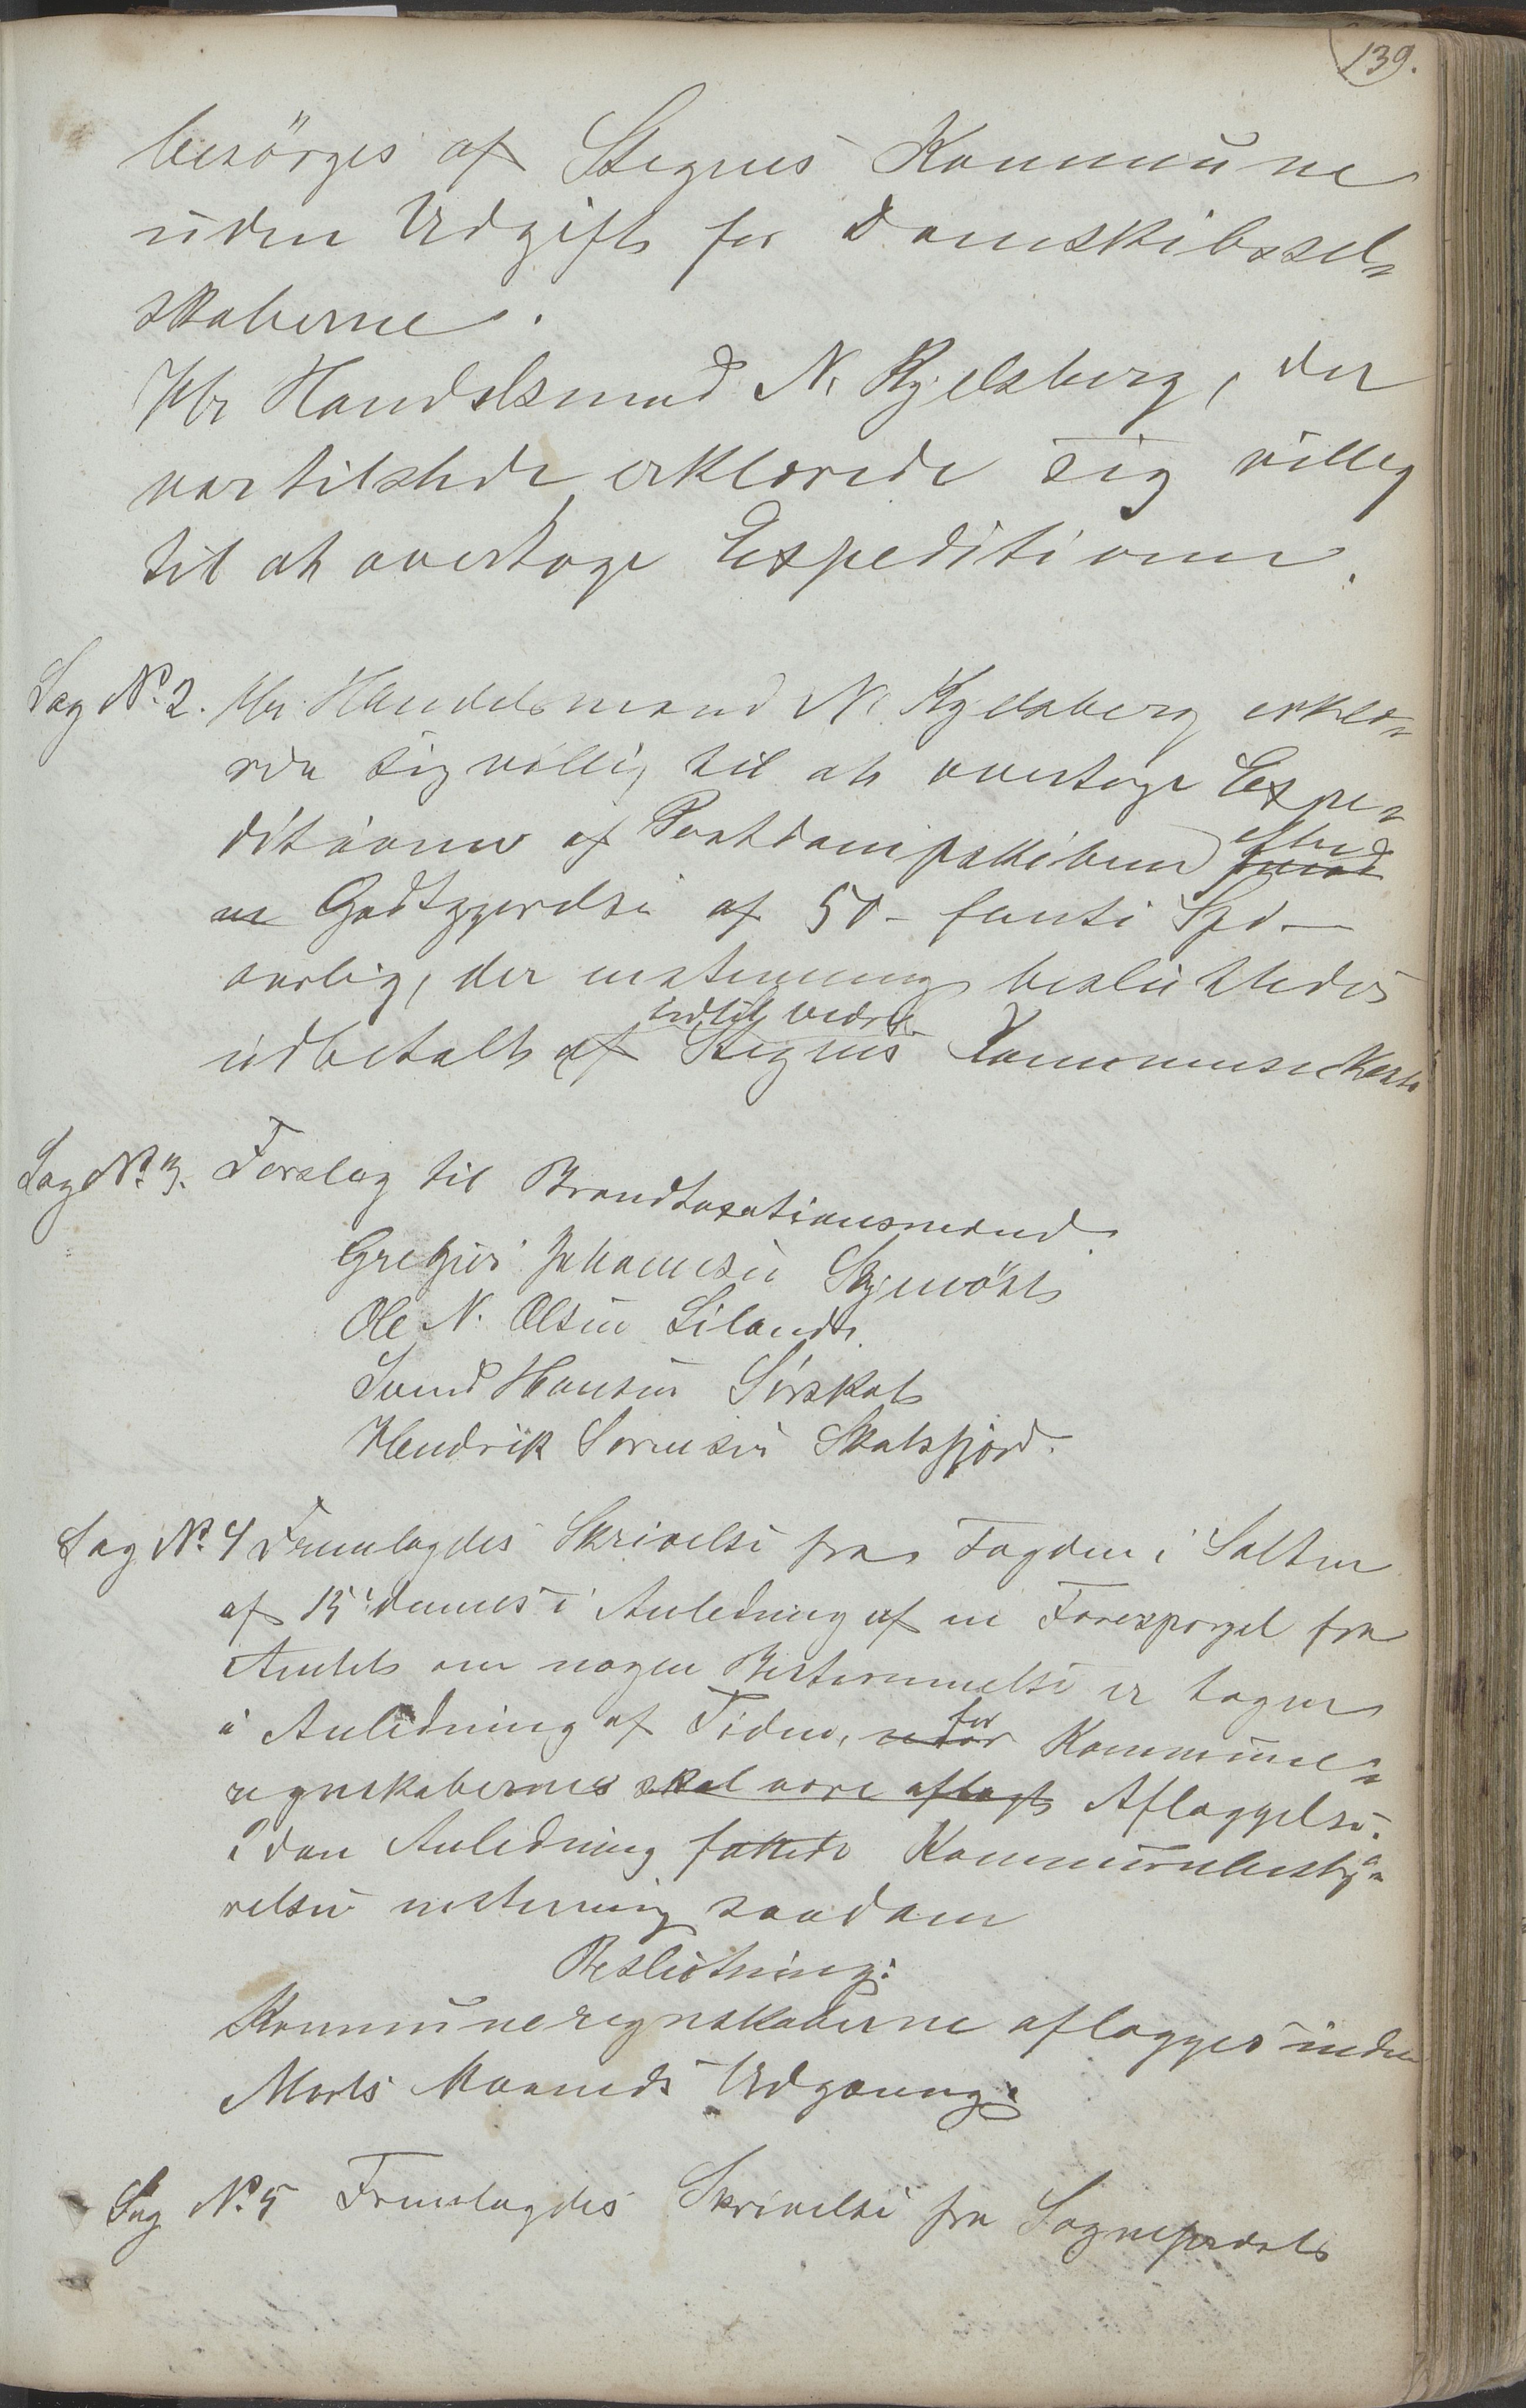 139.
besörges af Stegens Kommune
uden Udgift for Damskibssel-
skaberne.
Hr Handelsmand N. Kjelsberg, der
var tilstede, erklærede sig villig
til at overtage Expeditionen.
Sag No. 2. Hr. Handelsmand N. Kjelsberg erklæ-
rede sig villig til at overtage Expe-
ditionen af Postdampskibene efter
en Godtgjørelse af 50 - femti Spd. -
aarlig, der enstemmig besluttedes
indtil videre
udbetalt af Stegens Kommunekasse
Sag No. 3. Forslag til Brandtaxationsmænd
Gregus Johannesen Skjenöst
Ole N. Olsen Liland
Svend Hansen Sörskot
Hendrik Sorensen Skotsfjord.
Sag No. 4 Fremlagdes Skrivelse fra Fogden i Salten
af 15 dennes i Anledning af en Forespörgel fra
Amtet om nogen Bestemmelse er tagen
i Anledning af Tiden, for Kommune-
regnskabernes skal være aflagt Aflæggelse.
I den Anledning fattede Kommunebesty-
relsen enstemmig saadan
Beslutning:
Kommuneregnskaberne aflægges inden
Marts Maaneds Udgang.
Sag No. 5 Fremlagdes Skrivelse fra Sognepræst